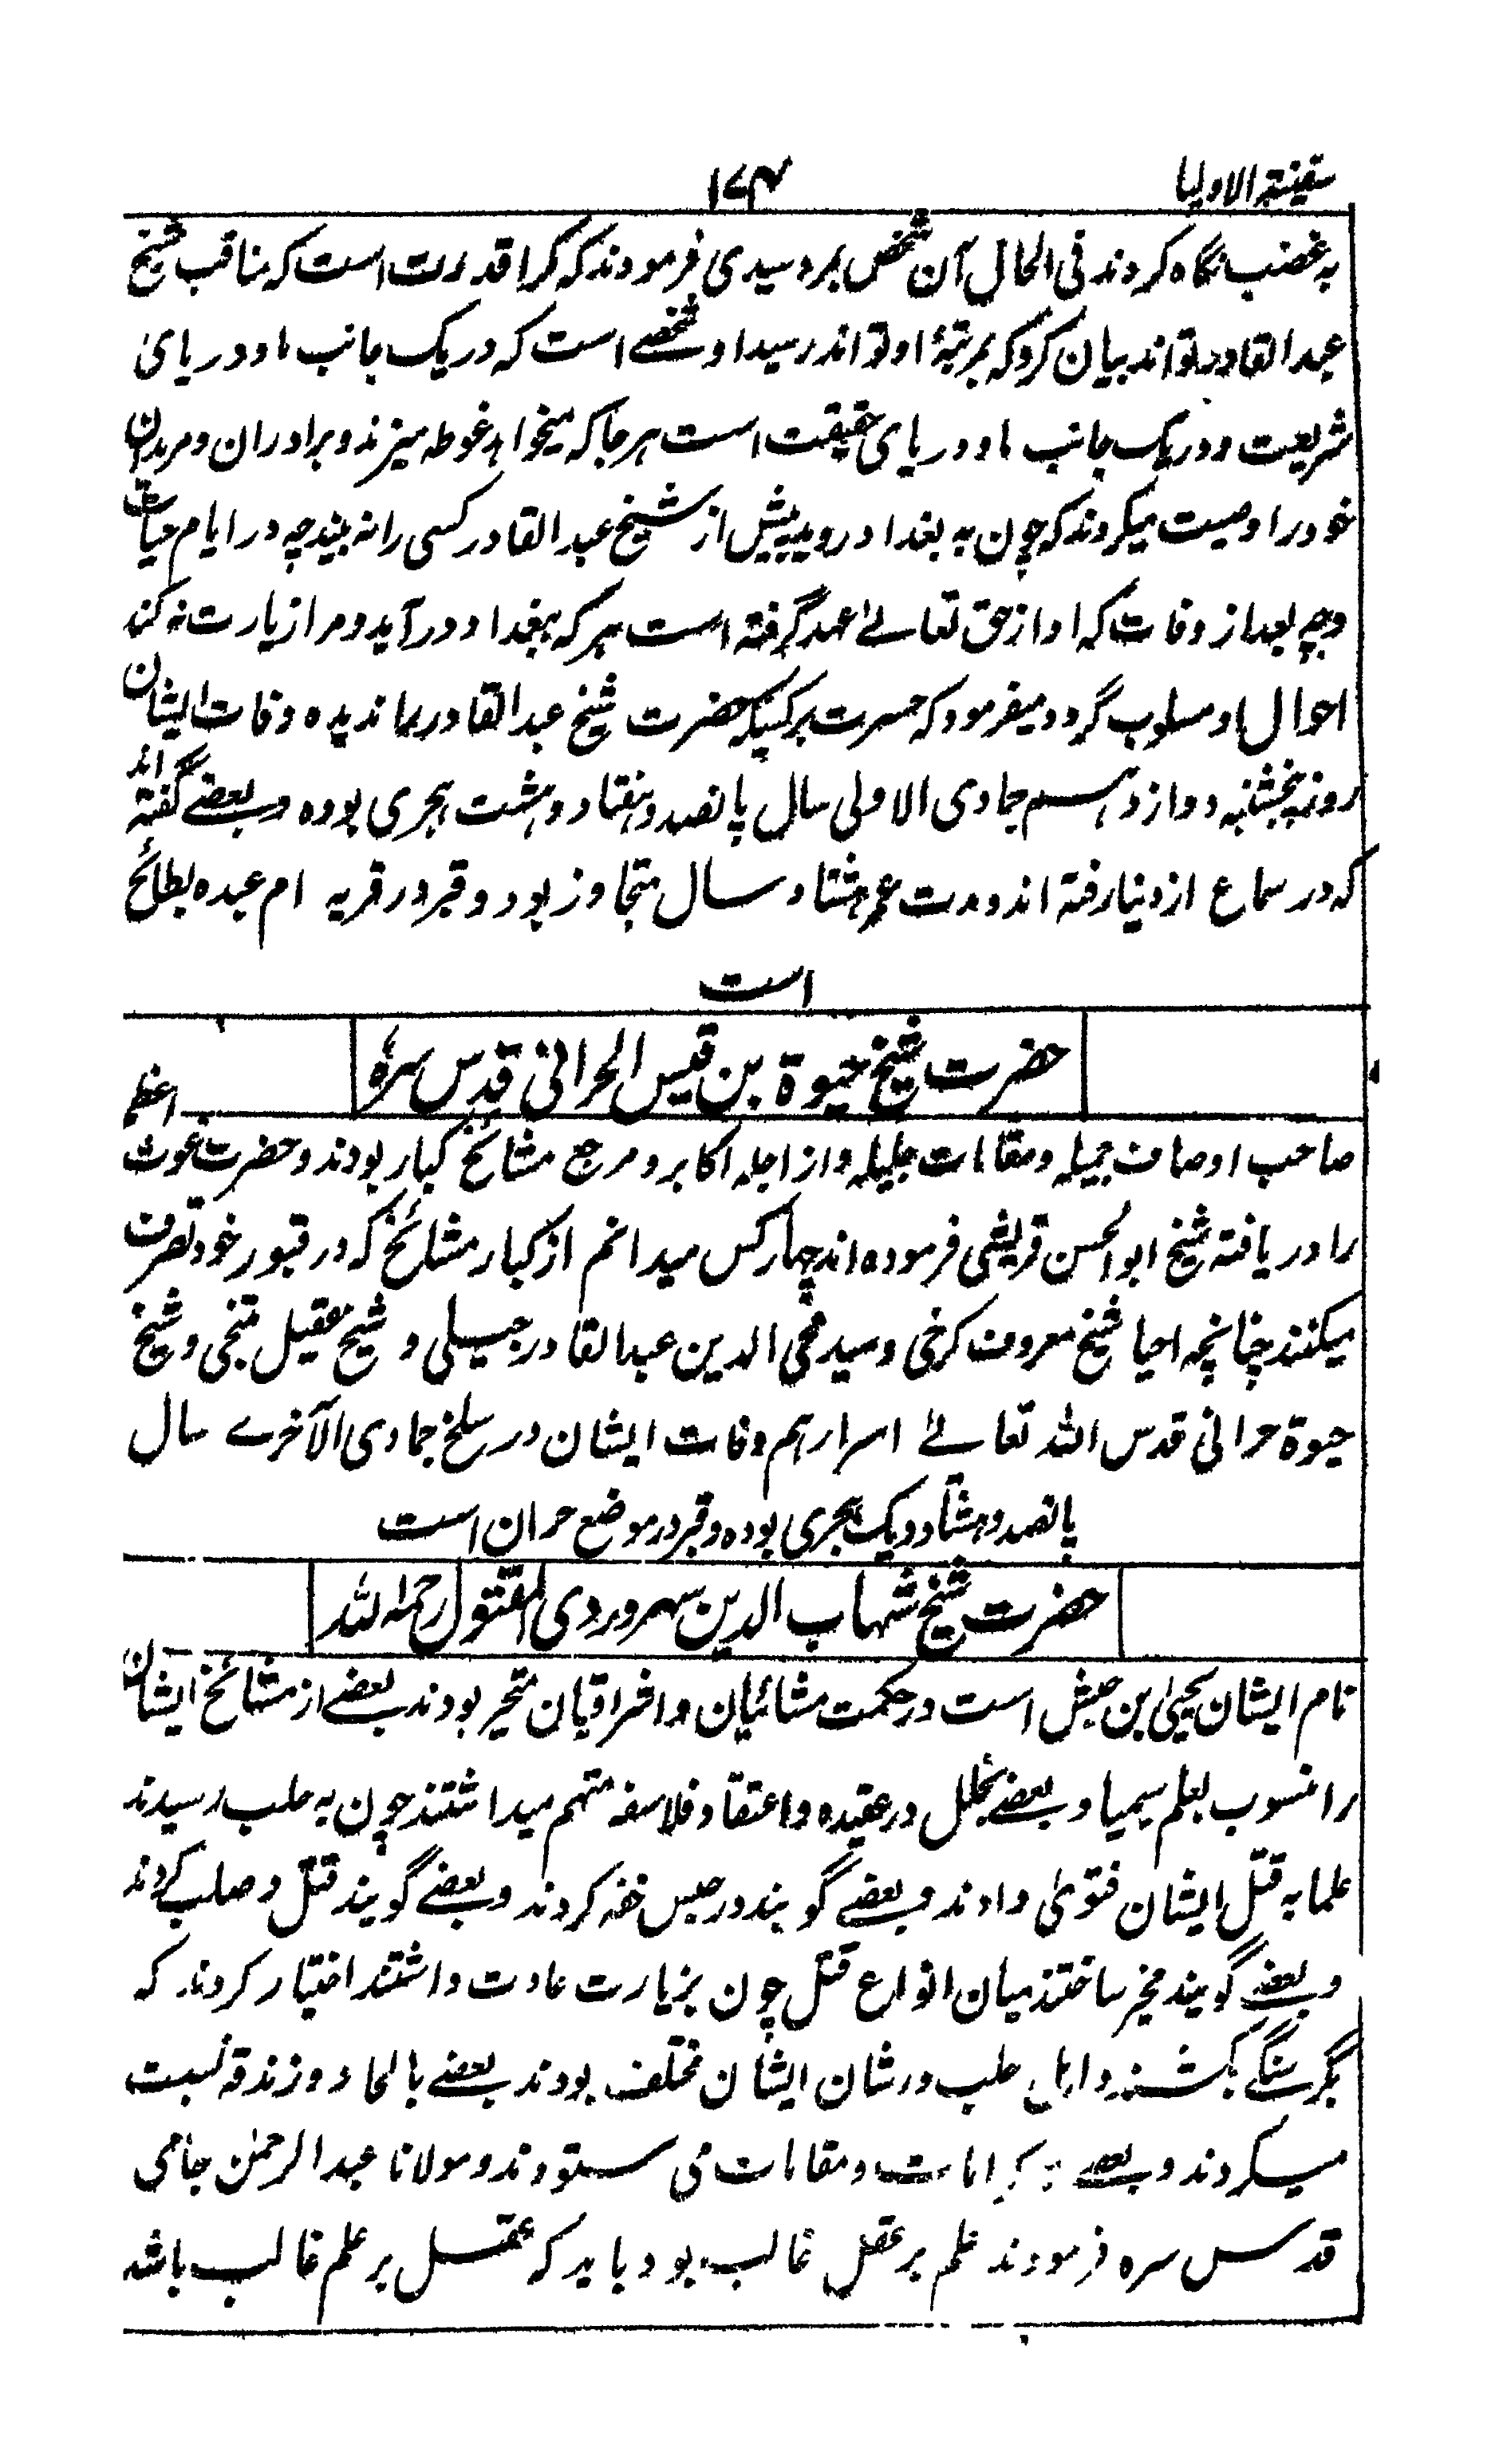 سفینۃ الاولیا
۱۷۴
بہ غضب نگاہ کردند فی الحال آن شخص بمرد سیدی فرمودند کہ کرا قدرت است کہ مناقب شیخ
عبد القادر تواند بیان کرد کہ بمرتبۂ او تواند رسید او شخصے است کہ در یک جانب او دریای
شریعت و در یک جانب او دریای حقیقت است ہر جا کہ میخواہد غوطہ میزند و برادران و مریدان
خود را وصیت میکردند کہ چون بہ بغداد روید پیش از شیخ عبد القادر کسی را نہ بیند چہ در ایام حیات
و چہ بعد از وفات کہ او از حق تعالےٰ عہد گرفتہ است ہر کہ ببغداد در آید و مرا زیارت نہ کند
احوال او مسلوب گردد و میفرمود کہ حسرت بر کسیکہ حضرت شیخ عبد القادر را ندیدہ وفات ایشان
روز پنجشنبہ دوازدہم جمادی الاولی سال پانصد و ہفتاد و ہشت ہجری بودہ و بعضے گفتہ اند
کہ در سماع از دنیا رفتہ اند و مدت عمر ہشتاد سال متجاوز بود و قبر در قریہ ام عبدہ بطائح
است
حضرت شیخ حیوة بن قیس الحرانی قدس سرہ
صاحب اوصاف جمیلہ و مقامات جلیلہ و از اجلہ اکابر و مرجع مشائخ کبار بودند و حضرت غوث اعظم
را دریافتہ شیخ ابو الحسن قریشی فرمودہ اند چہار کس میدانم از کبار مشائخ کہ در قبور خود تصرف
میکنند چنانچہ احیا شیخ معروف کرخی و سید محی الدین عبد القادر جیلی و شیخ عقیل منجی و شیخ
حیوة حرانی قدس اللہ تعالےٰ اسرارہم وفات ایشان در سلخ جمادی الآخرے سال
پانصد و ہشتاد و یک ہجری بودہ و قبر در موضع حران است
حضرت شیخ شہاب الدین سہروردی المقتول رحمہ اللہ
نام ایشان یحییٰ بن حبش است در حکمت مشائیان و اشراقیان متبحر بودند بعضے از مشائخ ایشان
را منسوب بعلم سیمیا و بعضے بخلل در عقیدہ و اعتقاد فلاسفہ متہم میداشتند چون بہ حلب رسیدند
علما بہ قتل ایشان فتویٰ دادند و بعضے گویند در حبس خفہ کردند و بعضے گویند قتل و صلب کردند
و بعضے گویند مخیر ساختند میان انواع قتل چون بزیارت عادت داشتند اختیار کردند کہ
بگرسنگے بکشند و اہل حلب در شان ایشان مختلف بودند بعضے بالحاد و زندقہ نسبت
میکردند و بعضے بکرامات و مقامات می ستودند و مولانا عبد الرحمٰن جامی
قدس سرہ فرمودند علم بر عقل غالب بود باید کہ عقل بر علم غالب باشد